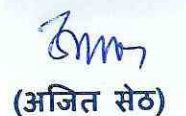 (अजित सेठ)